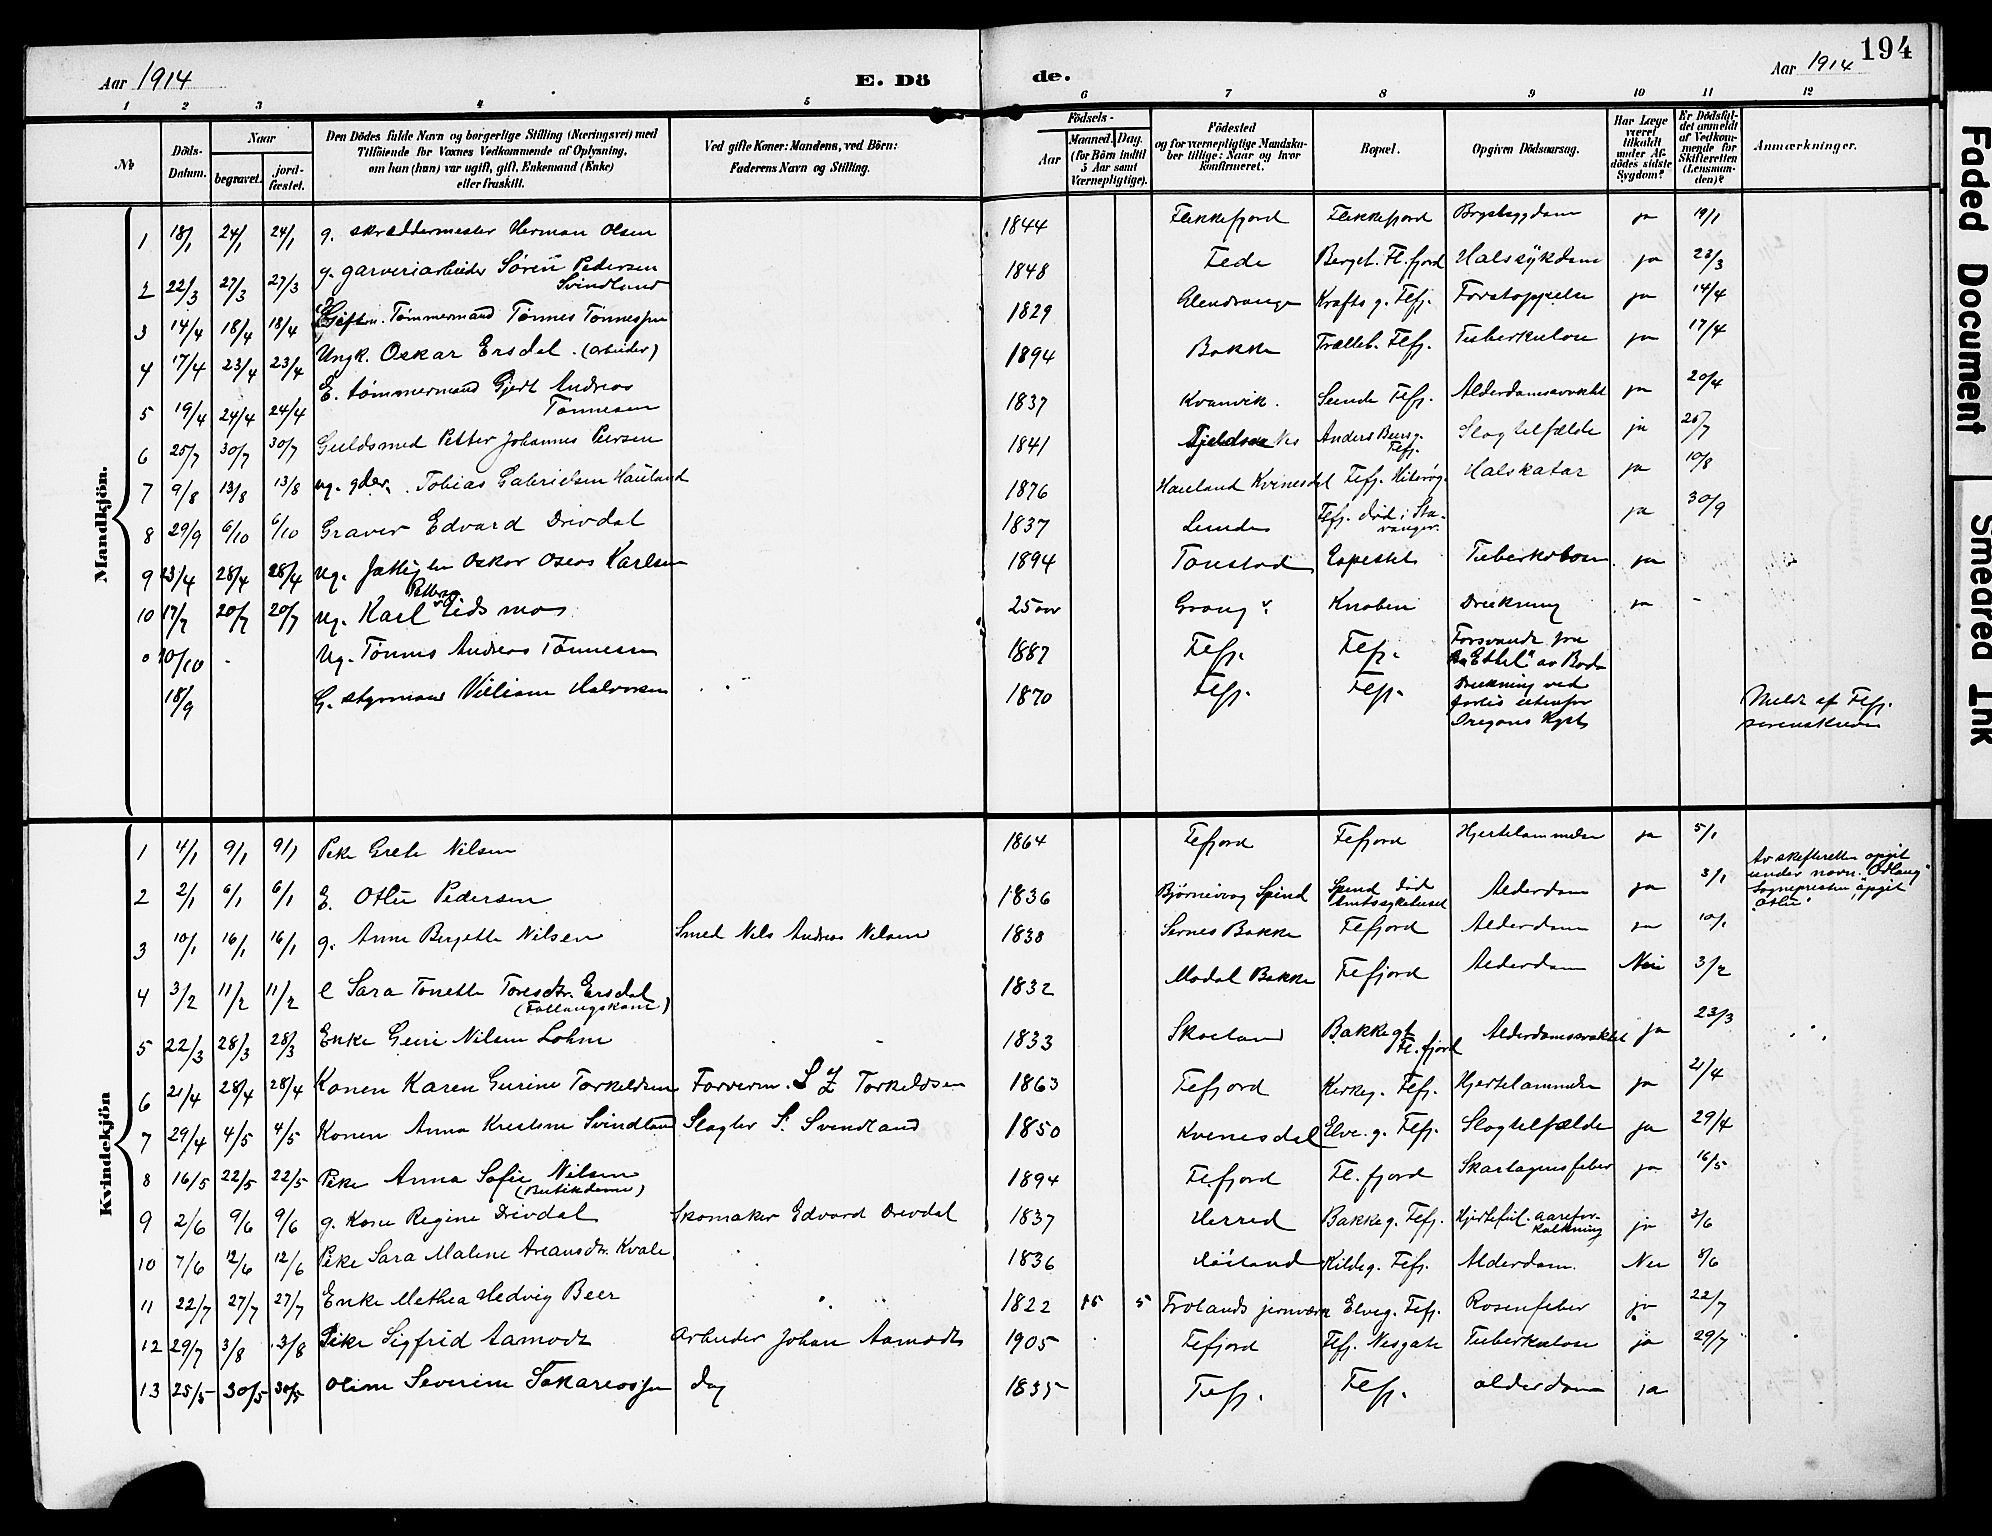 194
Aar 1914
E. Dö
de.
Aar 1914
1 2 3 4 5 6 7 8 9 10 11 12
No
Döds-Datum.
Naar
begravet. jordfæstet.
Den Dödes fulde Navn og borgerlige Stilling (Næringsvei) med
Tilföiende for Voxnes Vedkommende af Oplysning,
om han (hun) var ugift, gift, Enkemand (Enke)
eller fraskilt.
Ved gifte Koner: Mandens, ved Börn:
Faderens Navn og Stilling.
Födsels-
Aar Maaned. Dag.
(for Börn indtil
5 Aar samt
Værnepligtige).
Födested
og for værnepligtige Mandskaber tillige: Naar og hvor
konfirmeret.
Bopæl.
Opgiven Dödsaarsag.
Har Læge
været
tilkaldt
under Afdödes sidste
Sygdom?
Er Dödsfaldet anmeldt
af Vedkommende for
Skifteretten
(Lensmanden)?
Anmærkninger.
Mandkjön.
1 18/1 24/1 24/1 g. skræddermester Herman Olsen 1844 Flekkefjord Flekkefjord Brystsygdom ja 19/1
2 22/3 27/3 27/3 g. garveriarbeider Søren Pedersen
Svindland 1848 Fede Berget. Fl.fjord Halssykdom ja 23/3
3 14/4 18/4 18/4 Tømmermand Tønnes Tønnessen 1829 Krafts g. Flfj. Forstoppelse ja 14/4
4 17/4 23/4 23/4 Ungk. Oskar Ersdal. (arbeider) 1894 Bakke Trælleb. Flfj. Tuberkulose ja 17/4
5 19/4 24/4 24/4 E. tømmermand Gjert Andreas
Tønnesen 1837 Kvanvik. Sunde Flfj. Alderdomssvakhet ja 20/4
6 25/7 30/7 30/7 Guldsmed Petter Johannes Peersen 1841 Nes Anders Beersg.
Flfj. Slagtilfælde ja 25/7
7 9/8 13/8 13/8 ug. gdbr. Tobias Gabrielsen Hauland 1876 Hauland Kvinesdal Flfj. Hiterøg. Halskatar ja 10/8
8 29/9 6/10 6/10 Graver Edvard Drivdal 1837 Lunde Flfj. død i Stavanger. ja 30/9
9 23/4 28/4 28/4 ug. Oskar Karlsen 1894 Tonstad Tuberkulose ja
10 17/7 20/7 20/7 ug. Karl Eidsmo 25 aar Grong Knaben Drukning ja -
10/10 - Ug. Tønnes Andreas Tønnessen 1887 Flfj. Flfj. Forsvandt fra
"Ethel" av Bodø
18/9 G. styrmand Villiam Halvorsen 1870 Flfj. Flfj. Drukning ved
forlis utenfor
Oregons Kyst Meldt af Flfj.
sorenskriver
Kvindekjön
1 4/1 9/1 9/1 Pike Grete Nilsen 1864 Flfjord Flfjord Hjertelammelse ja 5/1
2 2/1 6/1 6/1 E. Otlu Pedersen 1836 Bjørnevog Spind Spind død
amtssykehuset Alderdom ja 3/1 Av skifteretten opgit
under navn "Odlaug"
Sognepresten opgit
"Otlu"
3 10/1 16/1 16/1 g. Anne Bergette Nilsen Smed Nils Andreas Nilsen 1838 Sernes Bakke Flfjord Alderdom ja 10/1
4 3/2 11/2 11/2 e Sara Tonette Toresdtr. Ersdal
(Fattigskone) 1832 Modal Bakke Flfjord Alderdom Nei 3/2
5 22/3 28/3 28/3 Enke Guri Nilsen Lohne 1833 Skoeland Bakkegt
Fl.fjord Alderdomssvakhet ja 23/3
6 21/4 28/4 28/4 Konen Karen Gurine Torkeldsen Farverm. S Z Torkeldsen 1863 Flfjord Kirkeg. Flfj. Hjertelammelse ja 21/4
7 29/4 4/5 4/5 Konen Anna Kristine Svindland Slagter S. Svindland 1850 Kvinesdal Elve. g. Flfj. Slagtilfælde ja 29/4
8 16/5 22/5 22/5 Pike Anna Sofie Nilsen
(Butikdame) 1894 Flfjord Fl. fjord Skarlagensfeber ja 16/5
9 2/6 9/6 9/6 g. Kone Regine Drivdal Skomaker Edvard Drivdal 1837 Herred Bakkeg. Flfj. Hjertefeil. aareforkalkning ja 3/6
10 7/6 12/6 12/6 Pike Sara Maline Kvale 1836 Kildeg. Flfj. Alderdom. Nei 8/6
11 22/7 27/7 27/7 Enke Methea Hedvig Beer 1822 15 5 Frolands jernværk Elveg. Flfj. Rosenfeber ja 22/7
12 29/7 3/8 3/8 Pike Sigfrid Aamodt Arbeider Johan Aamodt 1905 Flfjord Flfj. Nesgate Tuberkulose ja 29/7
13 25/5 30/5 30/5 Oline Severine Sakariassen 1835 Flfj. Flfj. alderdom ja
Faded Document
Smeared Ink